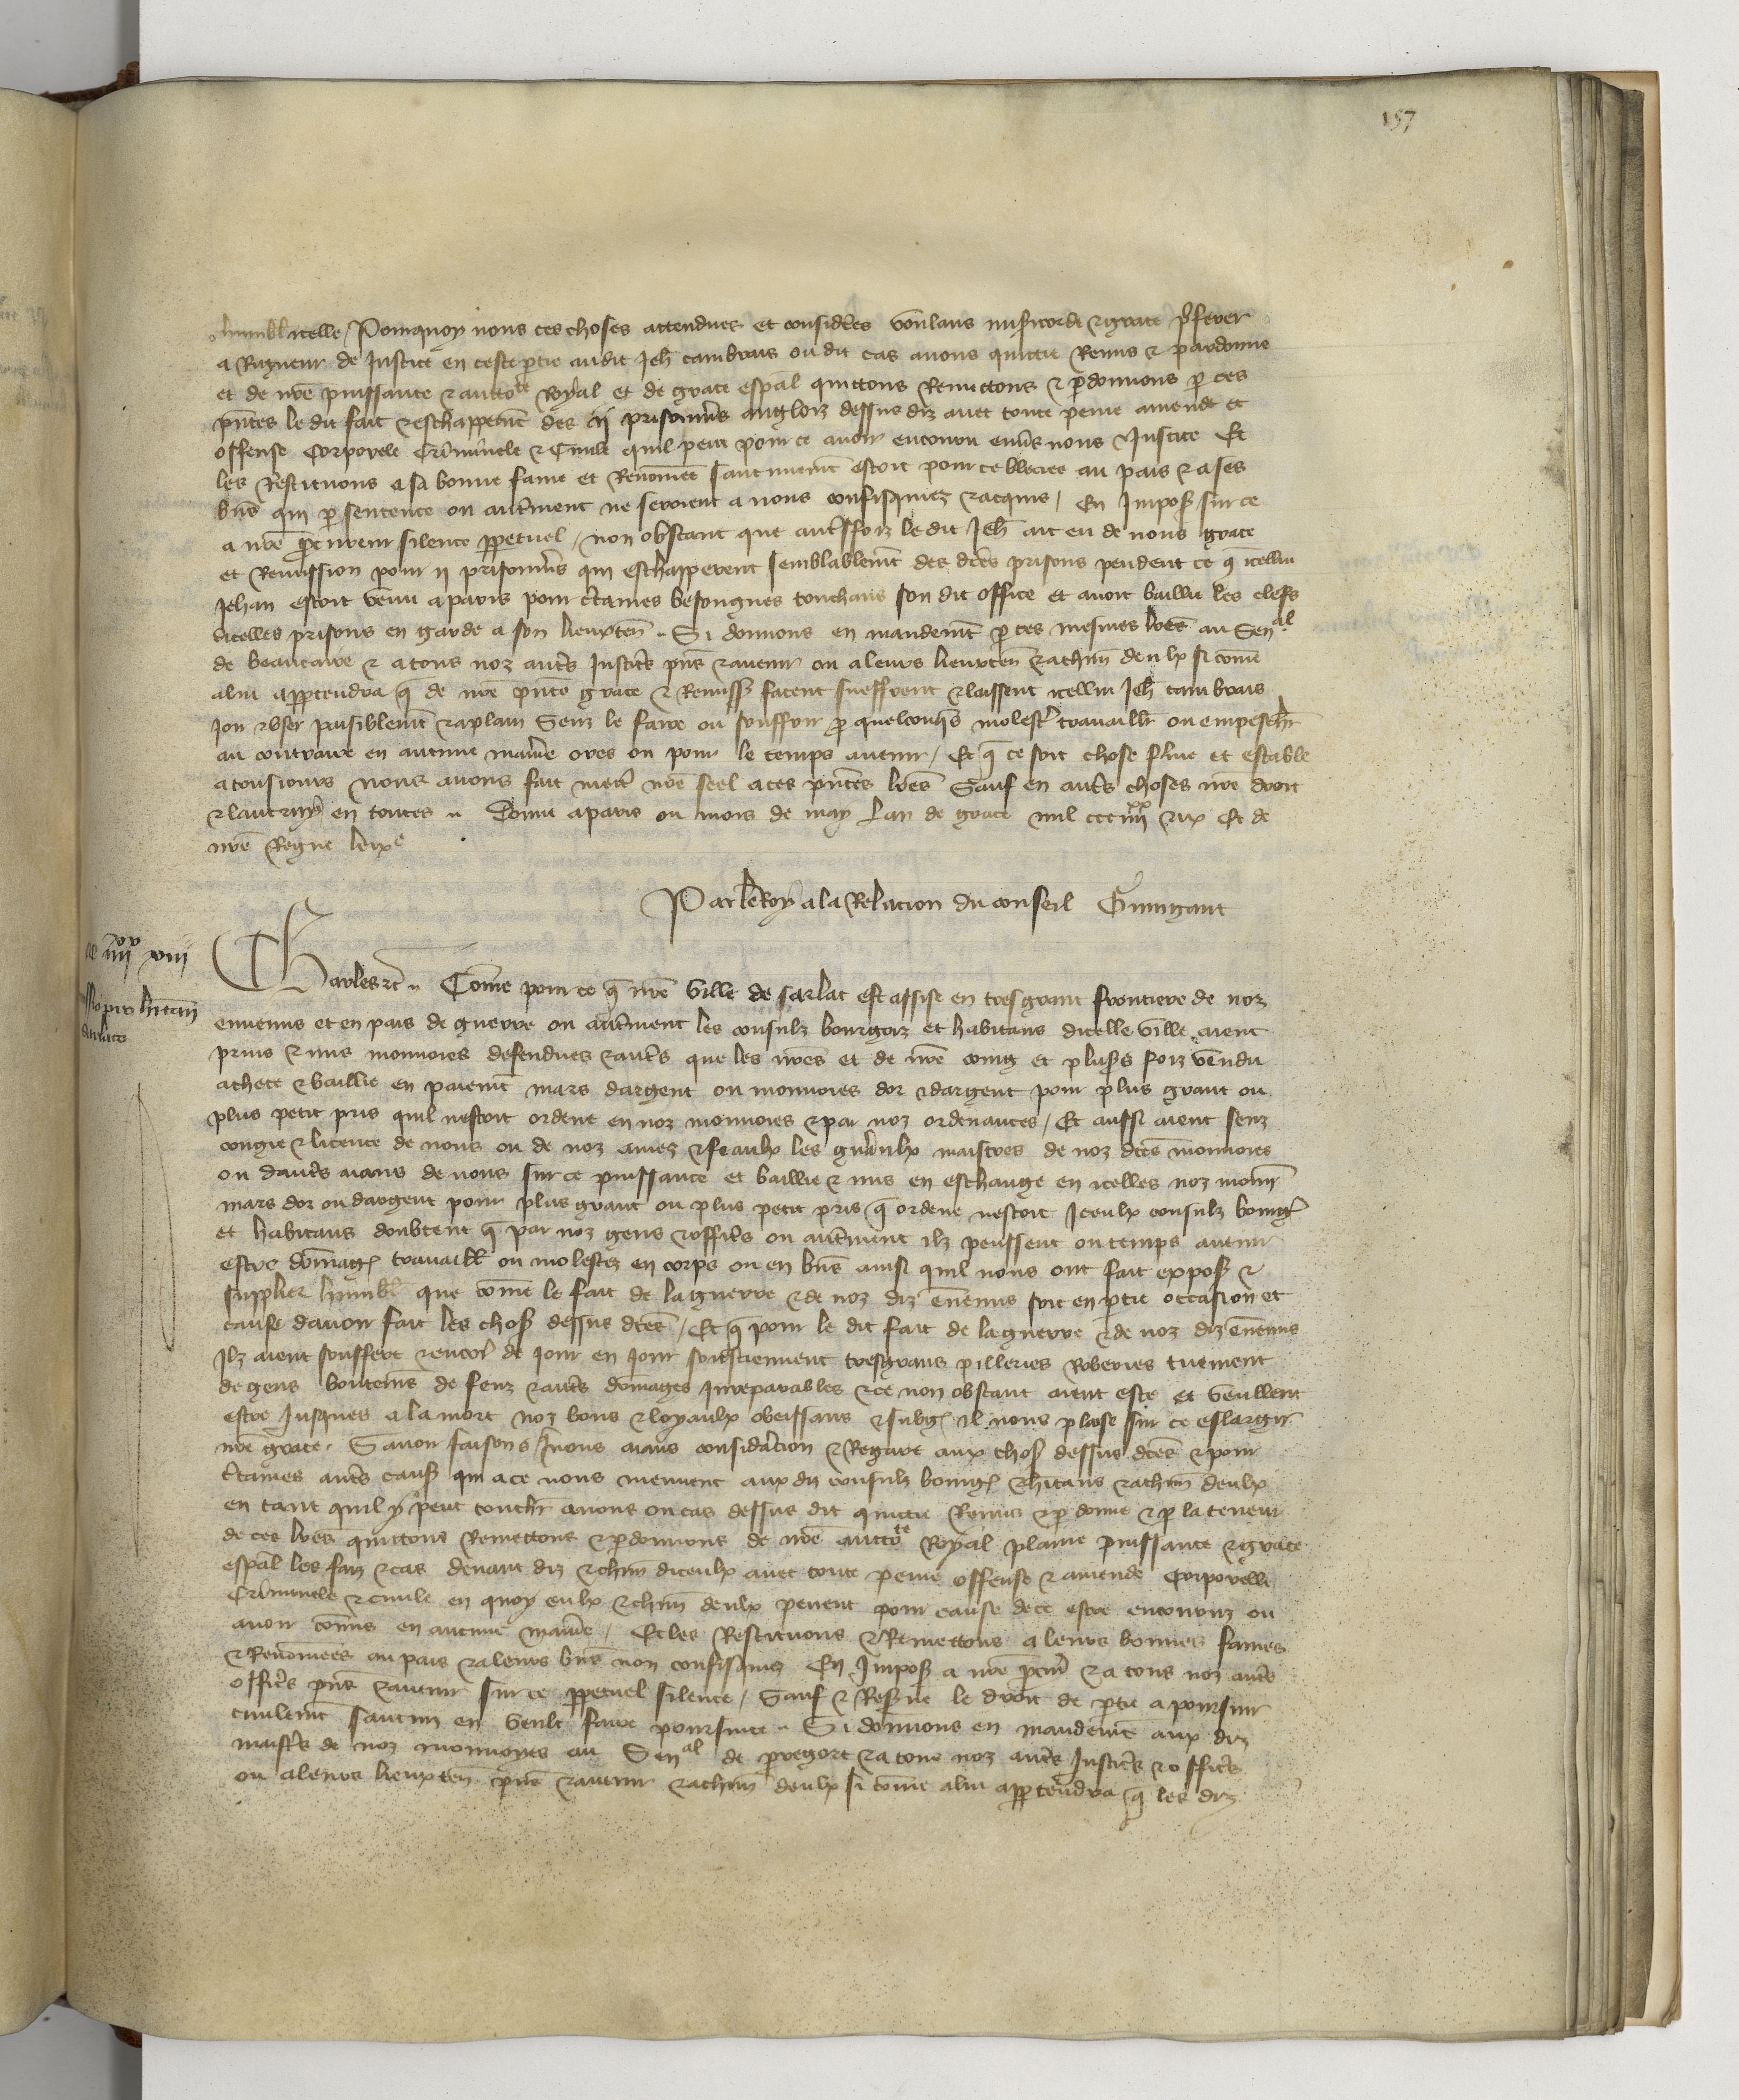 157
humblt icelle / Pourquoy nous ces choses attendues et considerees voulans misericorde & grace preferer
a Rigueur de Justice en ceste partie audit Jeh cambrais ou dit cas avons quitte Remis & pardonne
et de nre puissance & auctorite Royal et de grace espal quittons Remettons & pardonnons par ces
pntes le dit fait & eschappement des ij prisonniers anglois dessus diz avec toute peine amende et
offense Corporele Criminele & Civile quil peut pour ce avoir encouru envers nous & Justice Et
les Restituons a sa bonne fame et Renommee saucunement estoit pour ce bleciee au pais & a ses
biens qui par sentence ou autrement ne seroient a nous confisquiez & acquis / En Imposant sur ce
a nre procureur silence perpetuel / non obstant que autresfoiz le dit Jeh ait eu de nous grace
et Remission pour ij prisonniers qui eschapperent semblablement des dites prisons pendent ce que icellui
Jehan estoit venu a paris pour certaines besongnes touchans son dit office et avoit baillie les clefs
dicelles prisons en garde a son lieuxten Si donnons en mandement par ces mesmes lres au Senal
de beaucaire & a tous noz autres Justiciers pns & avenir ou a leurs lieuxten & a chun deulx si come
a lui appartendra que de nre pnte grace & Remission facent sueffrent & laissent icellui Jeh cambrais
Joir & user paisiblement & a plain Senz le faire ou souffrir par quelconques molester travaillier ou empeschier
au contraire en aucune maniere ores ou pour le temps avenir / Et que ce soit chose ferme et estable
a tousiours nous avons fait mettre nre seel a ces pntes lres Sauf en autres choses nre droit
& lautruy en toutes Donne a paris ou mois de may Lan de grace mil ccc iiii xx & ix Et de
nre Regne le ix e
Par le Roy a la Relacion du conseil Guingant
cc iiii xx viii
Charles &c Come pour ce que nre ville de sarlat est assise en tresgrant frontiere de noz
ennemis et en pais de guerre ou autrement les consulz bourgois et habitans dicelle ville aient
prins & mis monnoies defendues & autres que les nres et de nre coing et pluseurs foiz vendu
achete & baillie en paiement mars dargent ou monnoies dor & dargent pour plus grant ou
plus petit pris quil nestoit ordene en noz monnoies & par noz ordenances / Et aussi aient senz
congie & licence de nous ou de noz amez & feaulx les generaulx maistres de noz dites monnoies
ou dautres aians de nous sur ce puissance et baillie & mis en eschange en icelles noz monn
mars dor ou dargent pour plus grant ou plus petit pris que ordene nestoit Iceulx consulz bourg
et habitans doubtent que par noz gens & officiers ou autrement ilz peussent ou temps avenir
estre domag travaill ou molestez en corps ou en biens ainsi quil nous ont fait exposer &
supplier humbl que come le fait de la guerre & de noz diz ennemis soit en partie occasion et
cause davoir fait les choses dessus dites / Et que pour le dit fait de la guerre & de noz diz ennemis
Ilz aient souffert & encores de jour en jour soustiennent tresgrans pilleries Roberies tuement
de gens boutemens de feuz & autres domages Inreparables & ce non obstant aient este et veullent
estre Jusques a la mort noz bons & loyaulx obeissans & subg il nous plaise sur ce eslargir
nre grace Savoir faisons nous aians consideracion & Regart aux choses dessus dites & pour
certaines autres causes qui a ce nous meuvent aux diz consulz bourg & hitans & a chun deulx
en tant quil y peut touchier avons ou cas dessus dit quitte Remis & pardonne & par la teneur
de ces lres quittons Remettons & pardonnons de nre auctorite Royal plaine puissance & grace
espal les faiz & cas devant diz & chun diceulx avec toute peine offense & amende Corporelle
Criminele & civile en quoy eulx & chun deulx pevent pour cause de ce estre encouruz ou
avoir comis en aucune maniere / Et les Restituons & Remettons a leurs bonnes fames
& Renommees au pais & a leurs biens non confisquiez En Imposant a nre procureur & a tous noz autres
officiers pns & avenir sur ce perpetuel silence / Sauf & Reserve le droit de partie a poursuir
civilement saucun en veult faire poursuite Si donnons en mandement aux diz
maistres de noz monnoyes au Senal de pieregort & a tous noz autres Justiciers & officiers
ou a leurs lieuxten pns & avenir & a chun deulx si come a lui appartendra que les diz